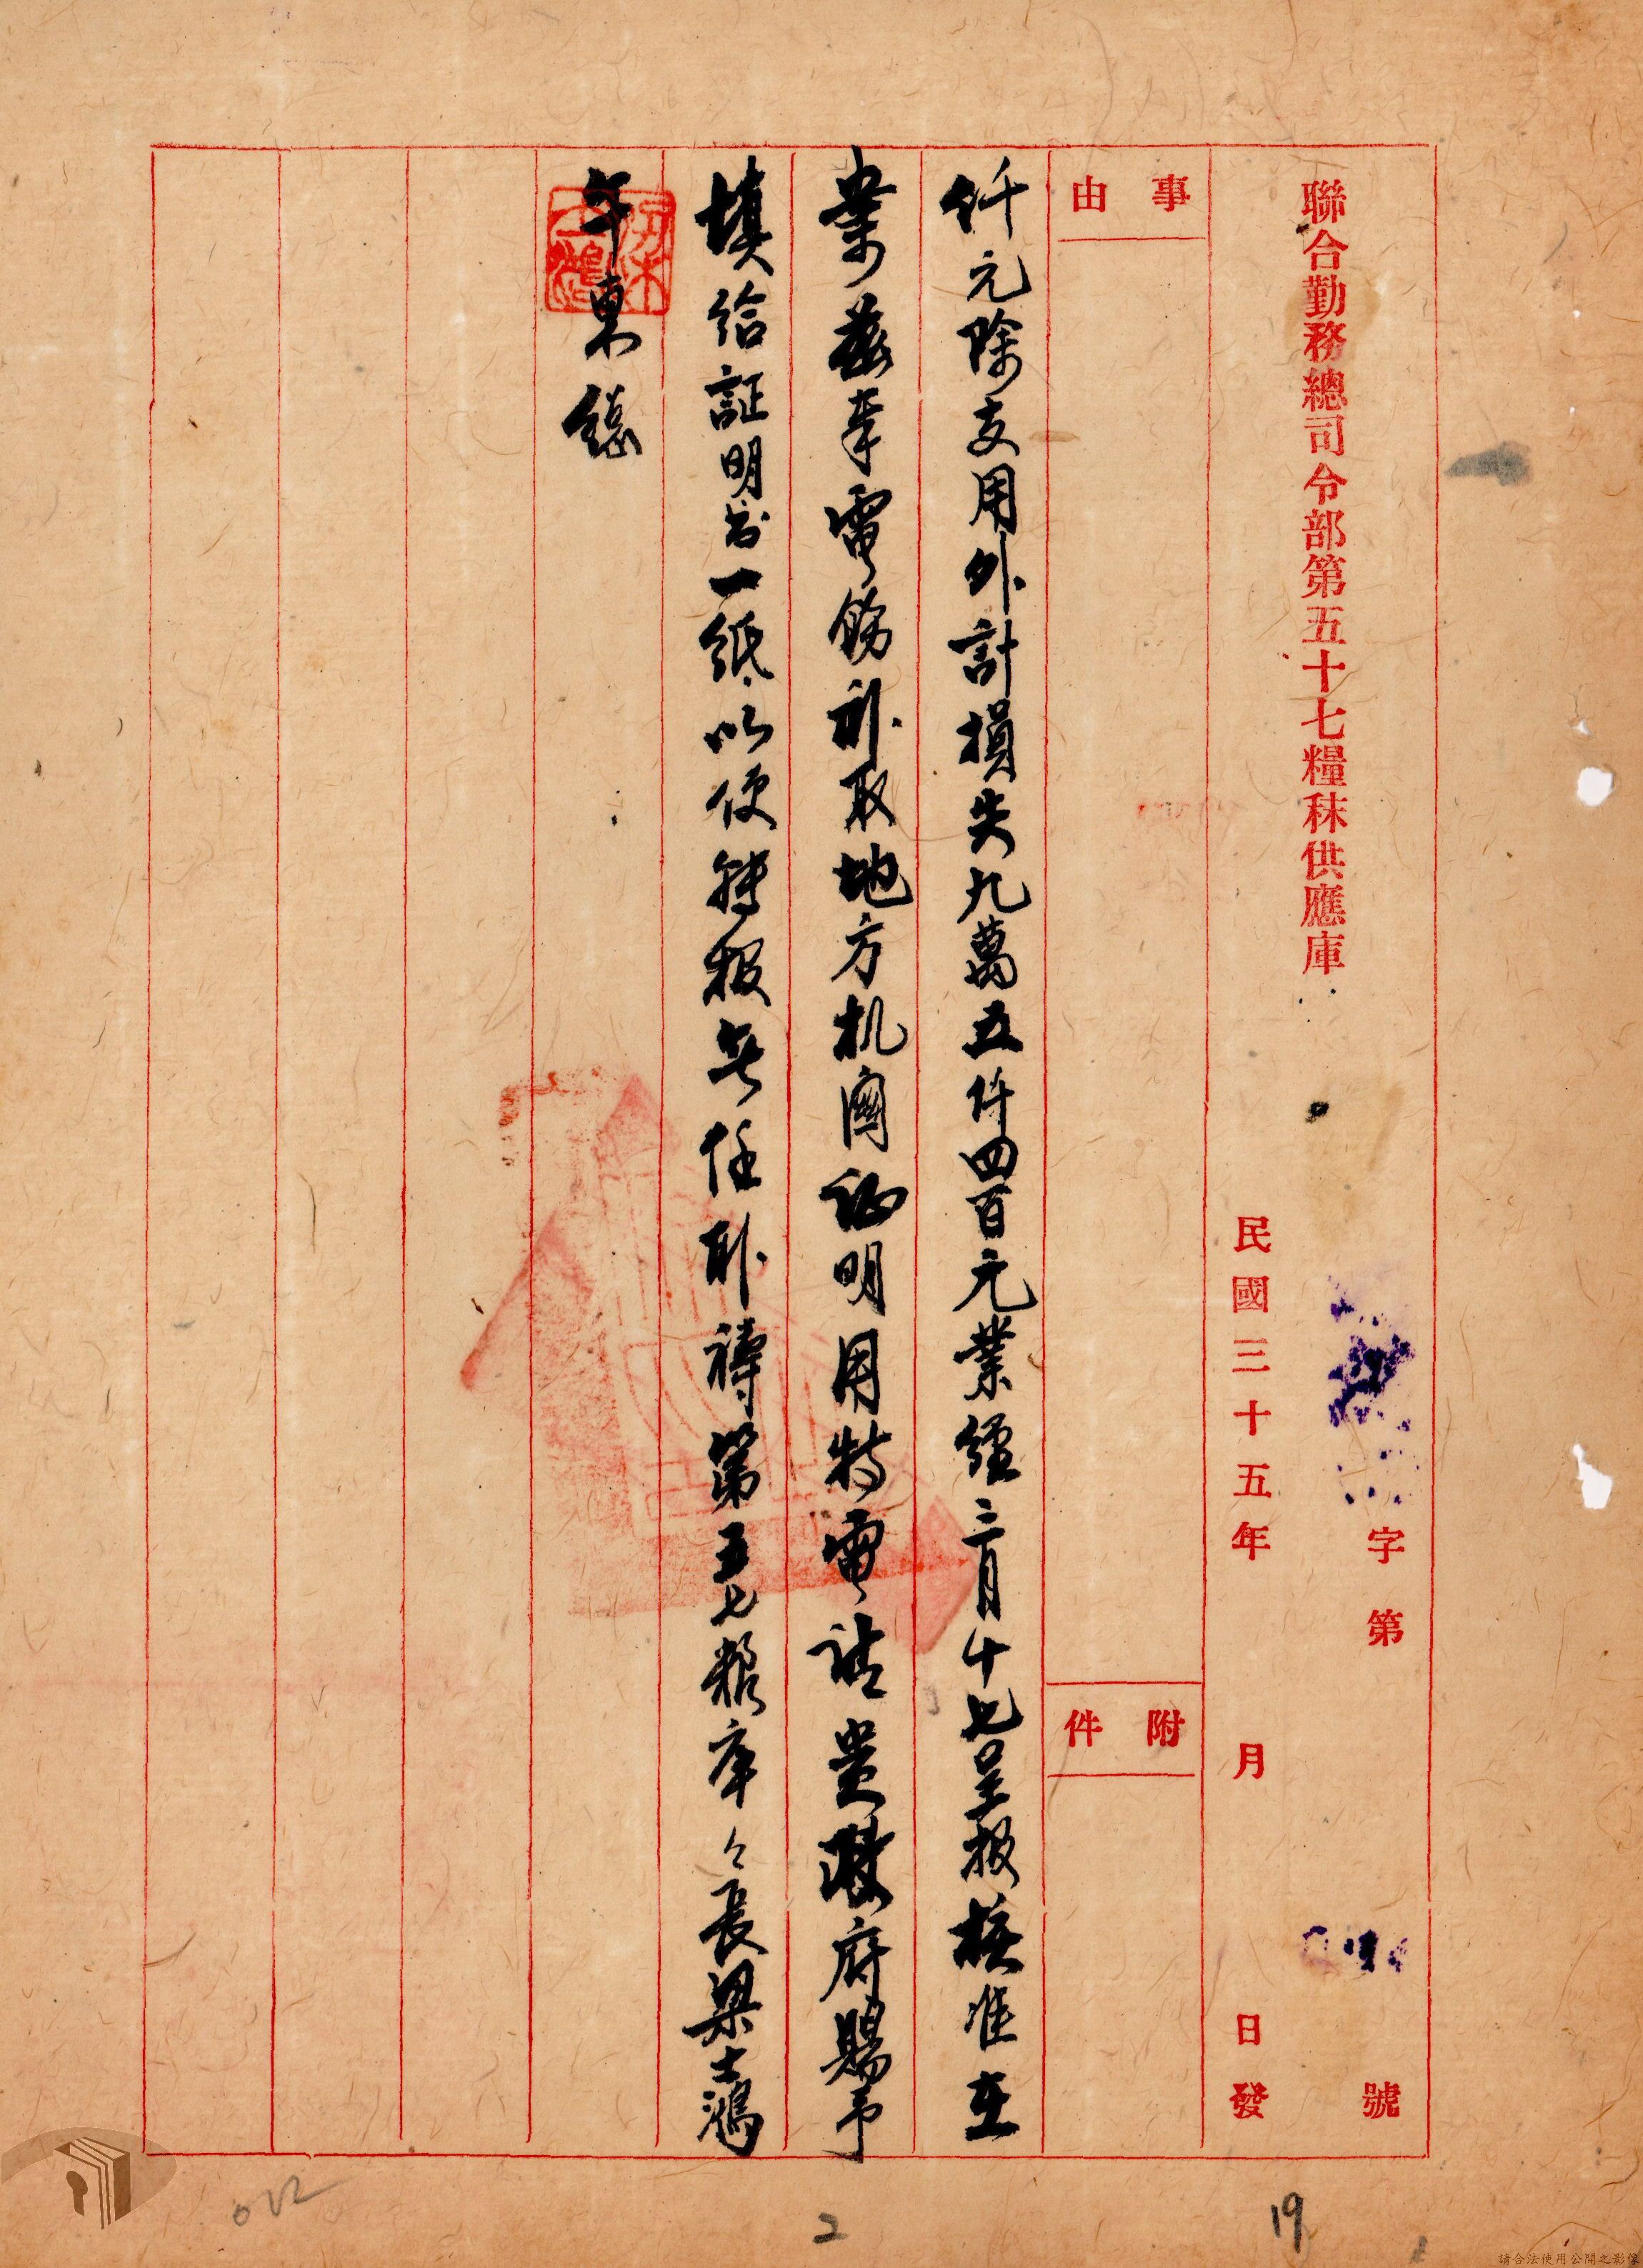 聯合勤務總司令部第五十七糧秣供應庫
字第 號
民國三十五年 月 日發
事由
附件
仟元除支用外計損失九萬五仟四百元業經三月十七呈报核准在
案茲奉電飭補取地方机関証明用特電請貴縣府賜予
填給証明书一紙以便轉报無任感禱第五七粮库々長梁士鴻
午東
019
2
請合法使用公開之影像